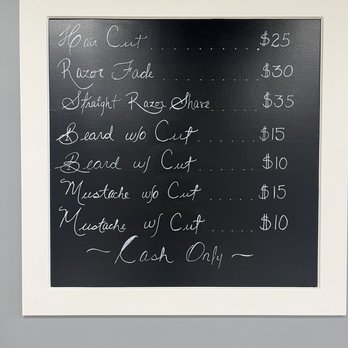 Hair Cut . . . . . . . . . . . $25
Razor Fade . . . . . . . . . . $30
Straight Razor Shave . . . . . $35
Beard w/o Cut . . . . . . . $15
Beard w/ Cut . . . . . . . $10
Mustache w/o Cut . . . . . . $15
Mustache w/ Cut . . . . . . $10
~ Cash Only ~